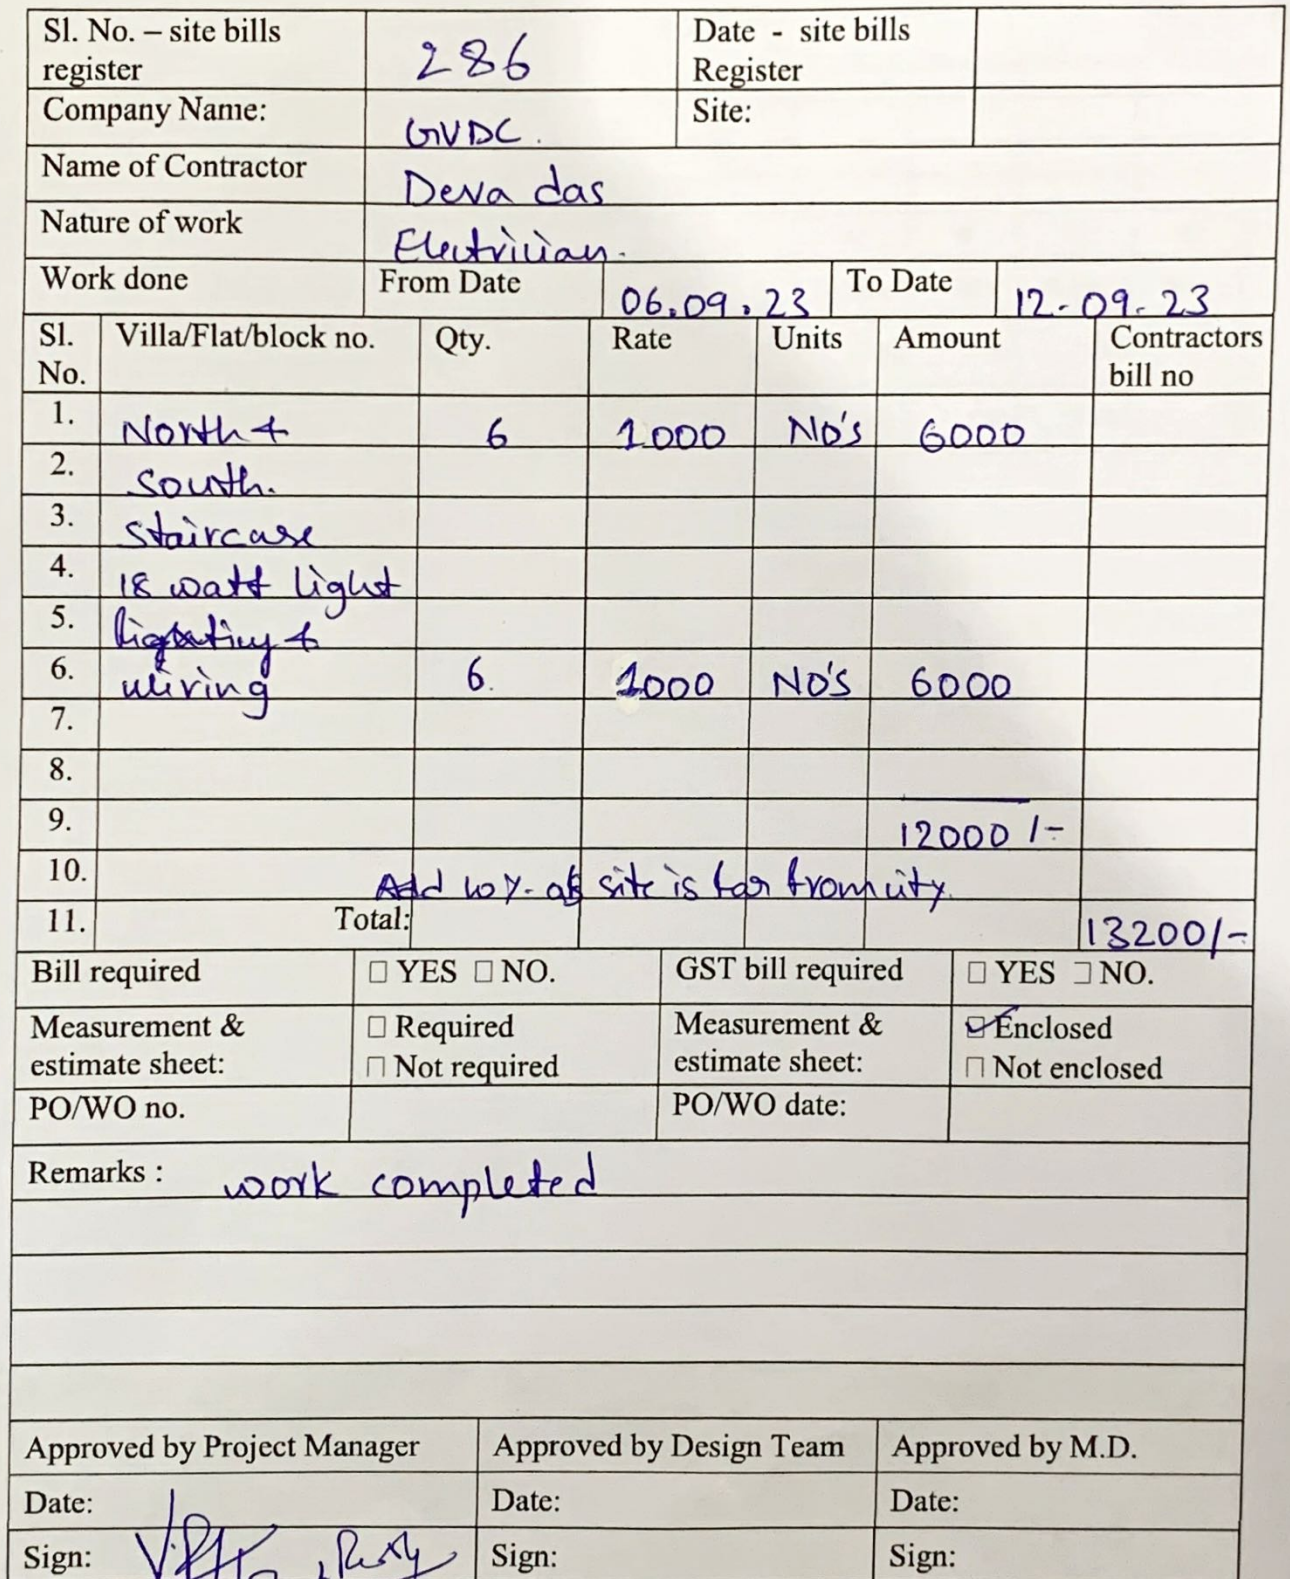 Sl. No. – site bills register 286 Date - site bills Register
Company Name: GVDC. Site:
Name of Contractor Deva das
Nature of work Electrician.
Work done From Date 06.09.23 To Date 12-09-23
Sl. No. Villa/Flat/block no. Qty. Rate Units Amount Contractors bill no
1. North & 6 1000 No's 6000
2. South.
3. Staircase
4. 18 watt light
5. &
6. wiring 6. 1000 NO'S 6000
7.
8.
9. 12000/-
10. Add 10%. as site is far from city.
11. Total: 13200/-
Bill required □ YES □ NO. GST bill required □ YES □ NO.
Measurement & estimate sheet: □ Required □ Not required Measurement & estimate sheet: ☑ Enclosed □ Not enclosed
PO/WO no. PO/WO date:
Remarks : work completed
Approved by Project Manager Approved by Design Team Approved by M.D.
Date: Date: Date:
Sign: Sign: Sign: